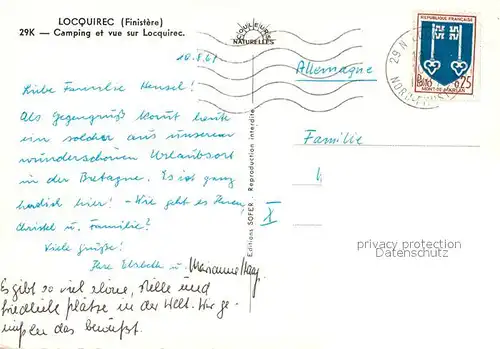 LOCQUIREC (Finistère)
29K — Camping et vue sur Locquirec.
COULEURS
NATURELLES
REPUBLIQUE FRANÇAISE
0,25
MONT-DE-MARSAN
29 N
NORD-FINIST
10.8.67
Allemagne
Liebe Familie Hensel!
Als Gegengruß kommt heute
ein solcher aus unserem
wunderschönen Urlaubsort
in der Bretagne. Es ist ganz
herrlich hier! – Wie geht es Ihnen
Christel u. Familie?
Viele Grüße!
Ihre Lisbeth u. Marianne
Es gibt so viel schöne, stille und
friedliche plätze in der Welt. Wir ge-
nießen das bewußt.
Familie
Editions SOFER - Reproduction interdite
X
privacy protection
Datenschutz